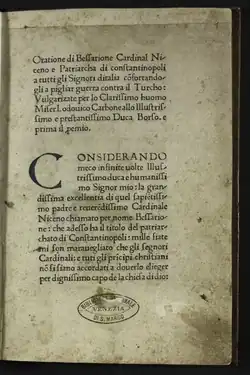 Oratione di Bessarione Cardinal Ni-
ceno e Patriarcha di constantinopoli
a tutti gli Signori ditalia cōfortando-
gli a pigliar guerra contra il Turcho:
Vulgarizate per lo Clarissimo huomo
Miser Lodouico Carbone allo Illustris-
simo e prestantissimo Duca Borso. e
prima il pemio.
CONSIDERANDO
meco infinite uolte Illus-
trissimo duca e humanissi-
mo Signor mio: la gran-
dissima excellentia di quel sapiētissi-
mo padre e reuerēdissimo Cardinale
Niceno chiamato per nome Bessario-
ne: che adesso ha il titolo del patriar-
chato di Constantinopoli: mille fiate
mi son marauegliato che gli segnori
Cardinali: e tuti gli prīcipi christiani
nō si siano accordati a douerlo elinger
per dignissimo capo de la chiesa di dio:
VENEZIA
DI S. MARCO